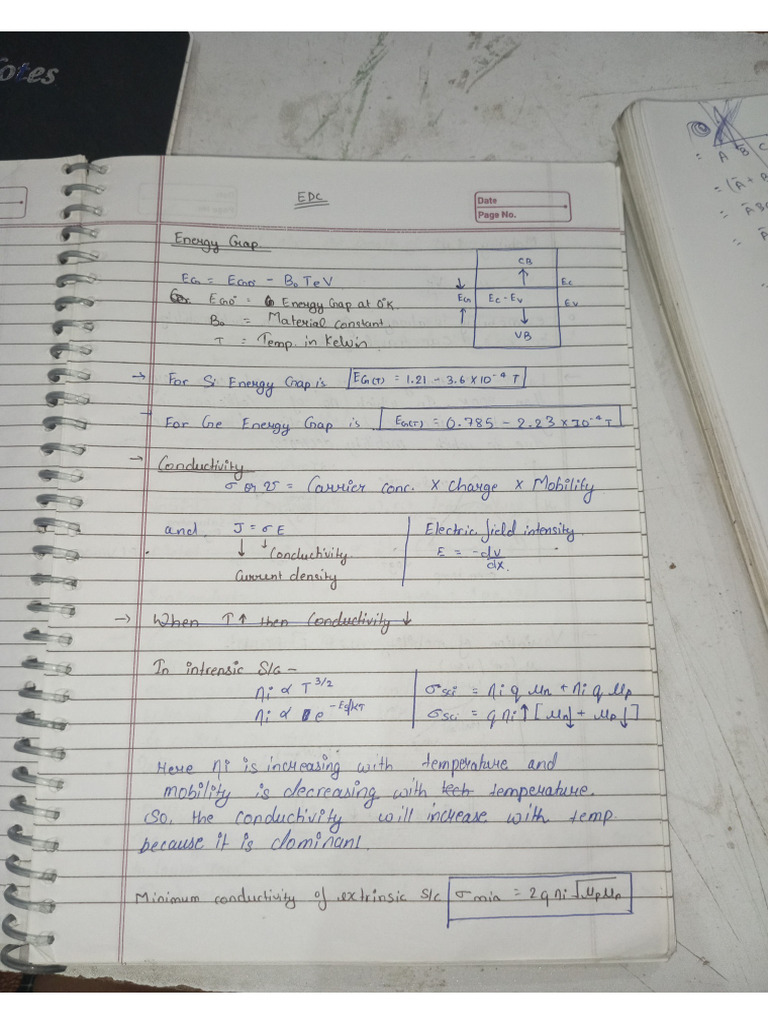 Notes
EDC
Date
Page No.
Energy Gap.
EG = EG0° - B₀ T eV
EG0° = Energy Gap at 0°K.
B₀ = Material constant
T = Temp. in Kelwin.
CB
EG
EC - EV
EC
EV
VB
→ For Si Energy Gap is EG(T) = 1.21 - 3.6 x 10⁻⁴ T
→ For Ge Energy Gap is EG(T) = 0.785 - 2.23 x 10⁻⁴ T
→ Conductivity
σ or = Carrier conc. x Charge x Mobility
and J = σ E
↓ ↓ Conductivity
Current density
Electric field intensity
E = -dv/dx.
→ When T ↑ then Conductivity ↓
In intrensic S/C -
ni ∝ T^3/2
ni ∝ e^-EG/KT
σsci = ni q μn + ni q μp
σsci = q ni ↑ [μn↓ + μp↓]
Here ni is increasing with temperature and
mobility is decreasing with tech temperature.
So, the conductivity will increase with temp.
because it is dominant.
Minimum conductivity of extrinsic S/C σmin = 2q ni √μpμn